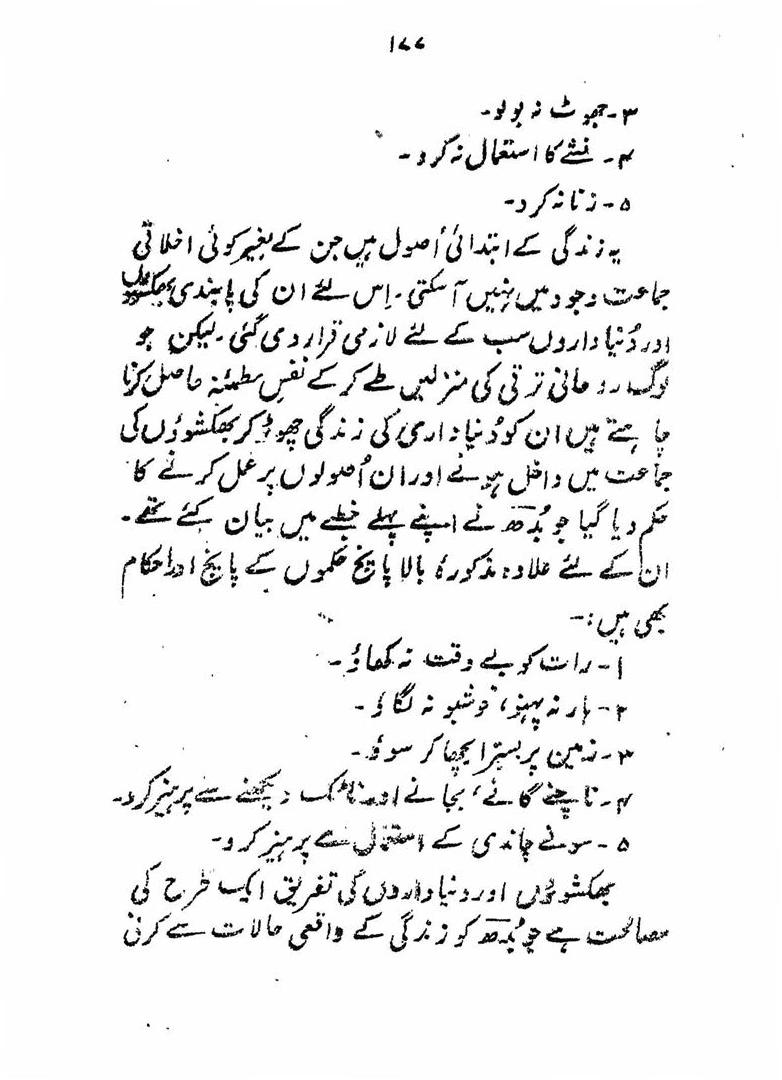 ۱۷۷
۳- جھوٹ نہ بولو۔
۴- نشے کا استعمال نہ کرو۔
۵- زنا نہ کرو۔
یہ زندگی کے ابتدائی اُصول ہیں جن کے بغیر کوئی اخلاقی
جماعت وجود میں نہیں آسکتی۔ اِس لئے ان کی پابندی بھکشوؤں
اور دُنیا داروں سب کے لئے لازمی قرار دی گئی۔ لیکن جو
لوگ روحانی ترقی کی منزلیں طے کر کے نفسِ مطمئنہ حاصل کرنا
چاہتے ہیں ان کو دُنیا داری کی زندگی چھوڑ کر بھکشوؤں کی
جماعت میں داخل ہونے اور ان اُصولوں پر عمل کرنے کا
حکم دیا گیا جو بُدھ نے اپنے پہلے خطبے میں بیان کئے تھے۔
ان کے لئے علاوہ مذکورہ بالا پانچ حکموں کے پانچ اور احکام
بھی ہیں:-
۱- رات کو بے وقت نہ کھاؤ۔
۲- ہار نہ پہنو، خوشبو نہ لگاؤ۔
۳- زمین پر بسترا بچھا کر سوؤ۔
۴- ناچنے گانے، بجانے اور ناٹک دیکھنے سے پرہیز کرو۔
۵- سونے چاندی کے استعمال سے پرہیز کرو۔
بھکشوؤں اور دنیا داروں کی تفریق ایک طرح کی
مصالحت ہے جو بُدھ کو زندگی کے واقعی حالات سے کرنی